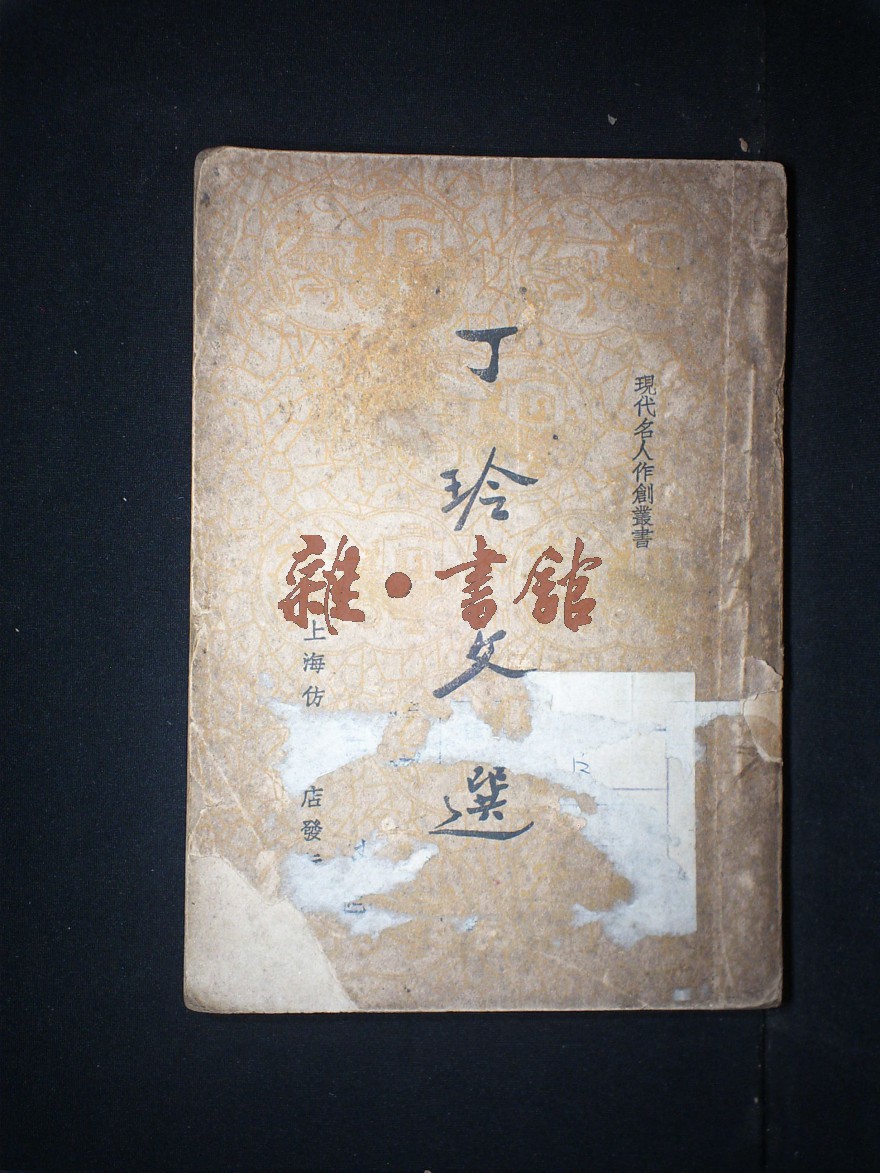 現代名人作創叢書
丁玲文選
上海仿
店發
雜·書館